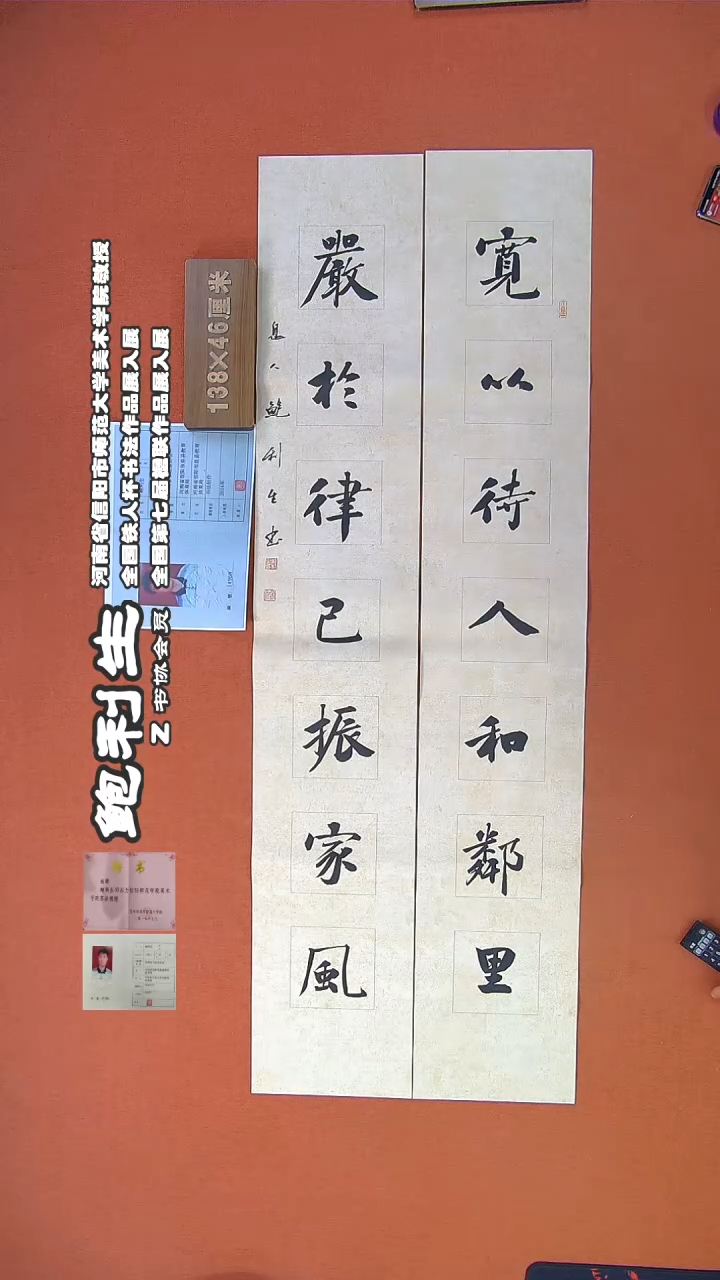 寬以待人和鄰里
嚴於律己振家風
息人鮑利生书
138×46厘米
河南省信阳市师范大学美术学院教授
全国铁人杯书法作品展入展
全国第七届楹联作品展入展
鲍利生
Z 书协会员